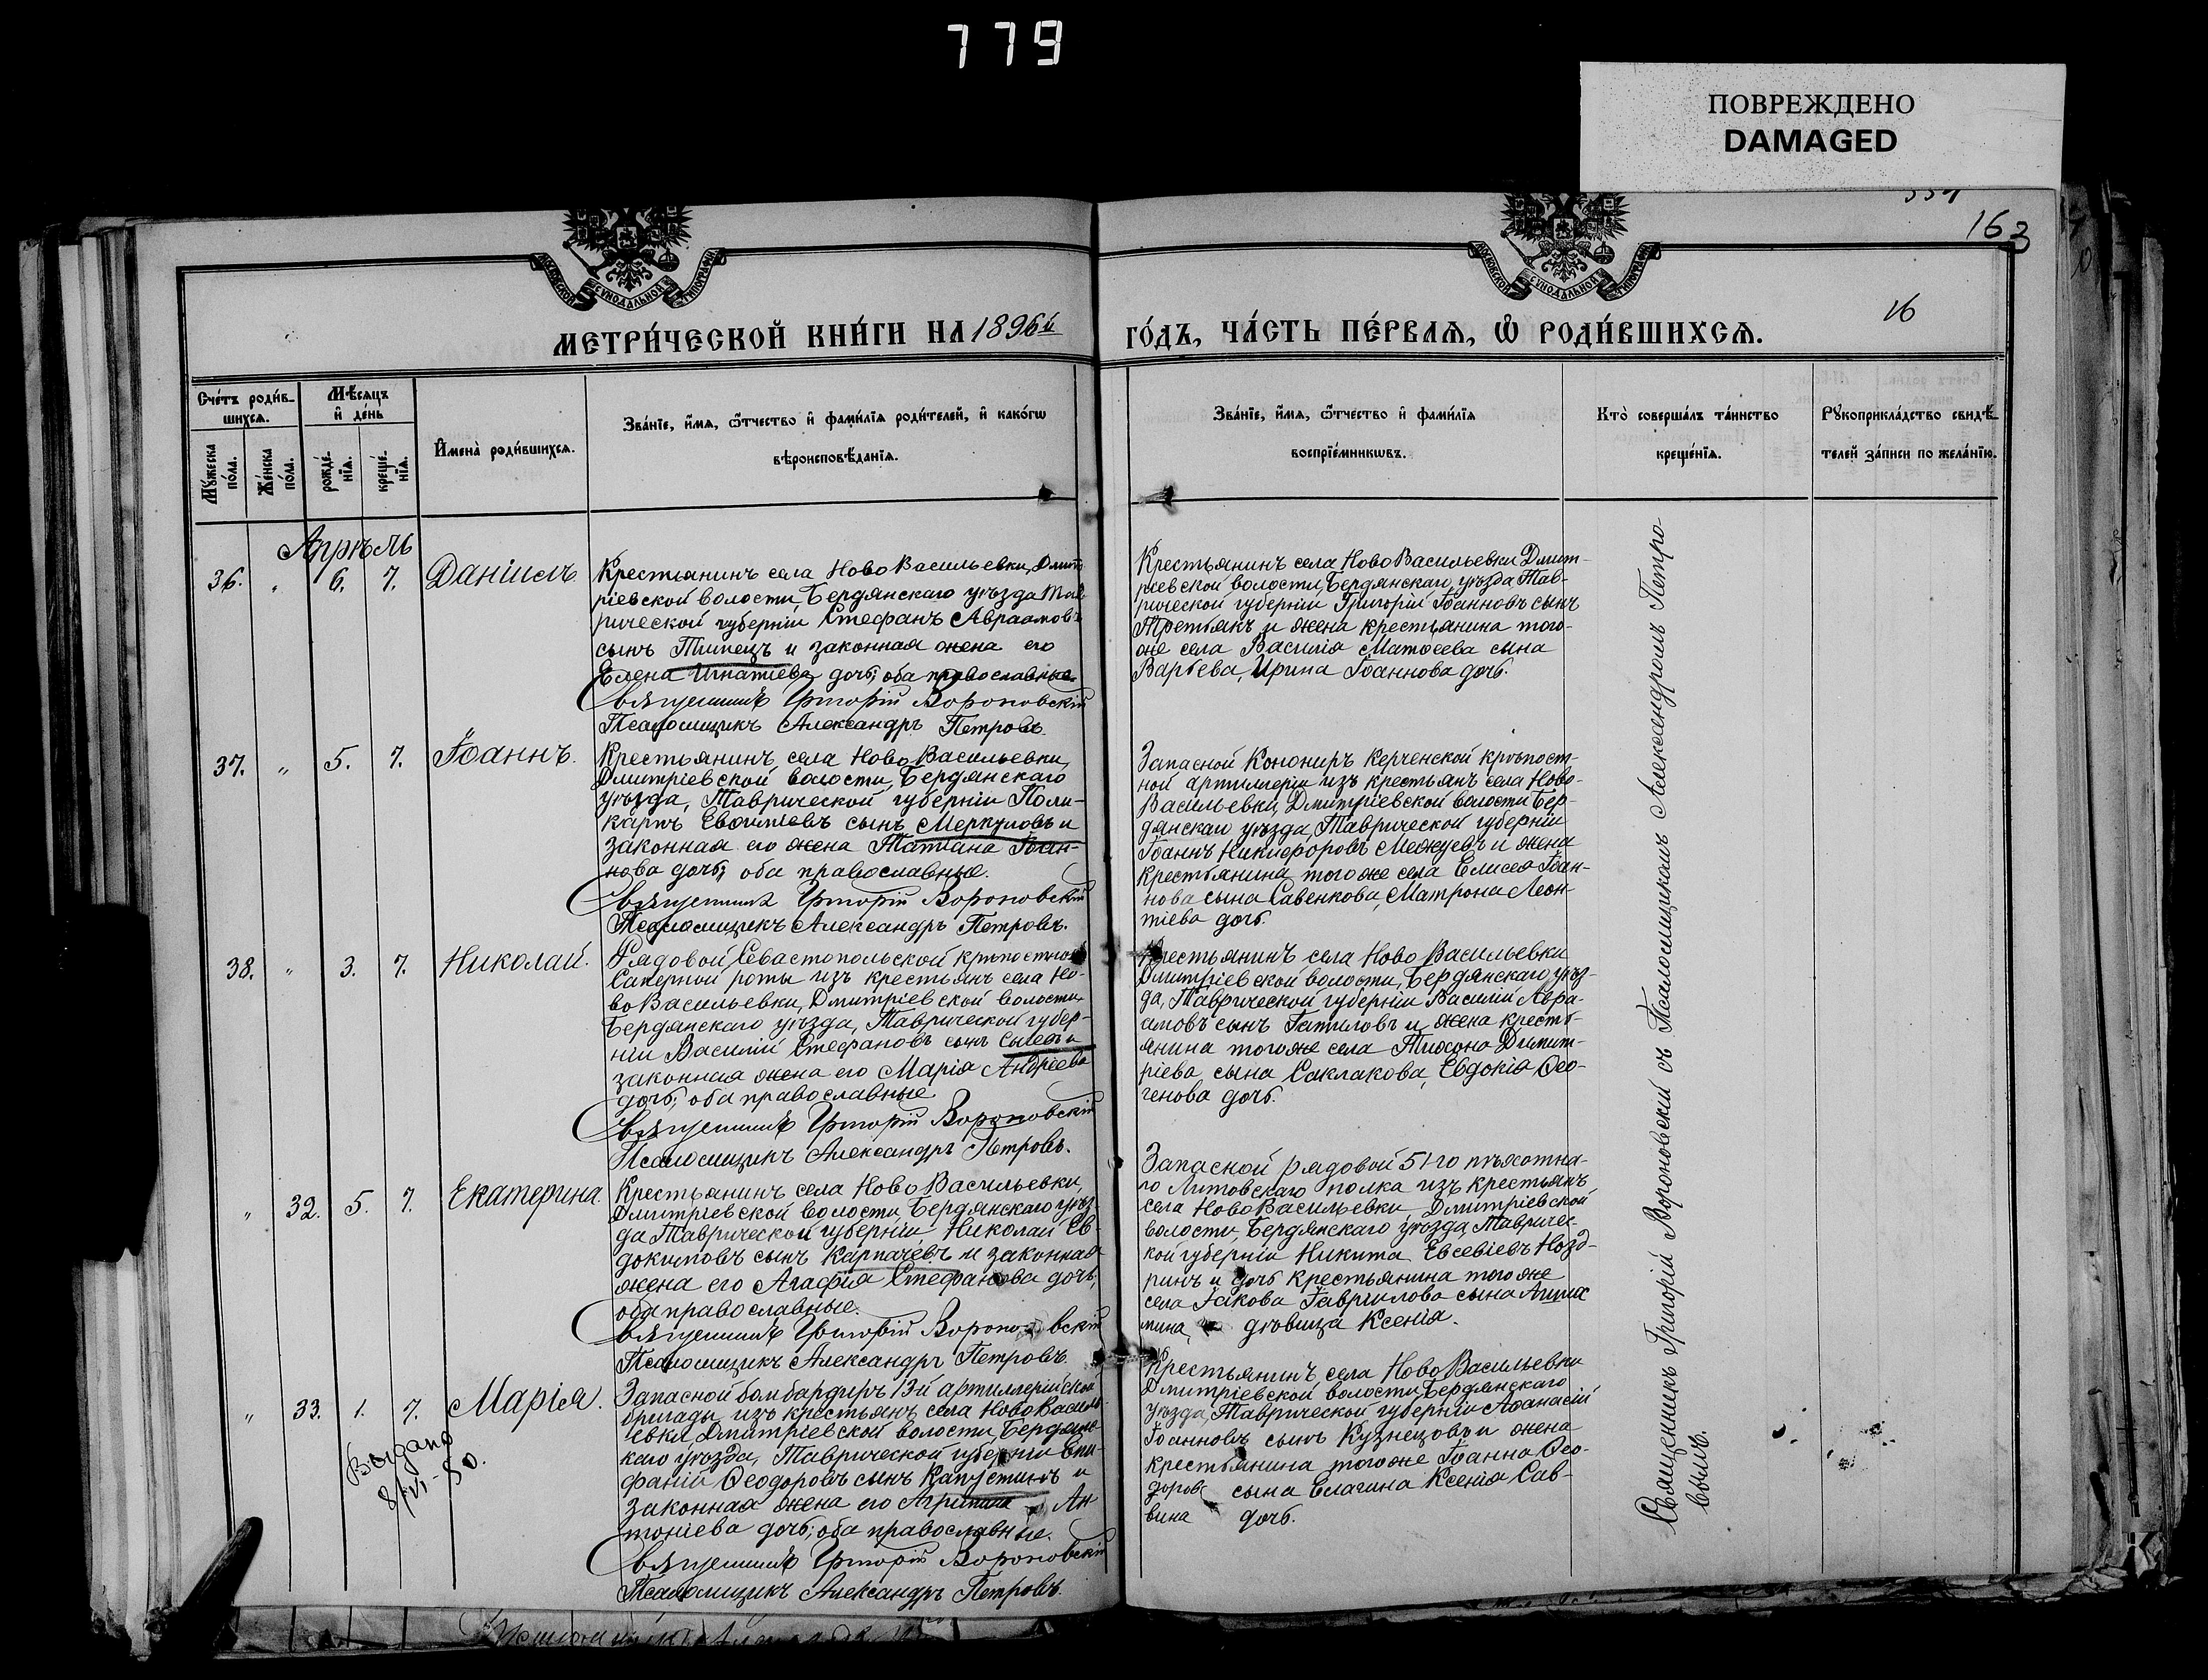 779
ПОВРЕЖДЕНО
DAMAGED
163
16
МОСКОВСКОЙ СѴНОДАЛЬНОЙ ТИПОГРАФІИ
МОСКОВСКОЙ СѴНОДАЛЬНОЙ ТИПОГРАФІИ
МЕТРИ́ЧЕСКОЙ КНИ́ГИ НА 1896й ГО́ДЪ, ЧА́СТЬ ПЕ́РВАѦ, Ѡ РОДИ́ВШИХСѦ.
Сче́тъ роди́в-
шихсѧ.
Мѣ́сѧцъ
и҆ де́нь
Мꙋ́жеска
по́ла.
Же́нска
по́ла.
рожде́-
нїѧ.
креще́-
нїѧ.
И҆мена̀ роди́вшихсѧ.
Зва́нїе, и҆́мѧ, ѻ҆́тчество и҆ фами́лїѧ роди́телей, и҆ како́гѡ
вѣроисповѣ́данїѧ.
Зва́нїе, и҆́мѧ, ѻ҆́тчество и҆ фами́лїѧ
воспрїе́мникѡвъ.
Кто̀ соверша́лъ та́инство
креще́нїѧ.
Рꙋкоприкла́дство свидѣ́-
телей за́писи по жела́нїю.
Апрѣль
36. " 6. 7. Даніилъ.
Крестьянинъ села Ново Васильевки, Дмит
ріевской волости, Бердянскаго уѣзда Тав
рической губерніи Стефанъ Авраамовъ
сынъ Типецъ и законная жена его
Елена Игнатіева дочь; оба православные.
Священникъ Григорій Вороновскій
Псаломщикъ Александръ Петровъ.
Крестьянинъ села Ново Васильевки Дмит-
ріевской волости, Бердянскаго уѣзда Тав-
рической губерніи Григорій Іоанновъ сынъ
Третьякъ и жена крестьянина того-
же села Василія Матѳеева сына
Варбева, Ирина Іоаннова дочь.
37. " 5. 7. Іоаннъ.
Крестьянинъ села Ново Васильевки,
Дмитріевской волости, Бердянскаго
уѣзда, Таврической губерніи Поли-
карпъ Евѳиміевъ сынъ Меркуловъ и
законная его жена Татіана Іоан-
нова дочь; оба православные.
Священникъ Григорій Вороновскій
Псаломщикъ Александръ Петровъ.
Запасной Конониръ Керченской крѣпост-
ной артиллеріи изъ крестьянъ села Ново-
Васильевки, Дмитріевской волости Бер-
дянскаго уѣзда, Таврической губерніи
Іоаннъ Никифоровъ Межуевъ и жена
крестьянина того же села Елисея Іоан-
нова сына Савенкова, Матрона Леон-
тіева дочь.
38. " 3. 7. Николай.
Рядовой Севастопольской крѣпостной
Саперной роты изъ крестьянъ села Но-
во Васильевки, Дмитріевской волости,
Бердянскаго уѣзда, Таврической губер-
ніи Василій Стефановъ сынъ и
законная жена его Марія Андреева
дочь; оба православные
Священникъ Григорій Вороновскій
Псаломщикъ Александръ Петровъ.
Крестьянинъ села Ново Васильевки
Дмитріевской волости, Бердянскаго уѣз-
да, Таврической губерніи Василій Авра-
амовъ сынъ Гатиловъ и жена кресть-
янина того же села Тихона Димит-
ріева сына Саклакова, Евдокія Ѳео-
генова дочь.
" 32. 5. 7. Екатерина.
Крестьянинъ села Ново Васильевки,
Дмитріевской волости, Бердянскаго уѣз-
да Таврической губерніи Николай Ев-
докимовъ сынъ Карпачевъ и законная
жена его Агафія Стефанова дочь;
оба православные.
Священникъ Григорій Вороновскій
Псаломщикъ Александръ Петровъ.
Запасной рядовой 51-го пѣхотна-
го Литовскаго полка изъ крестьянъ
села Ново Васильевки Дмитріевской
волости, Бердянскаго уѣзда, Тавричес-
кой губерніи Никита Евсевіевъ Нозд-
ринъ и дочь крестьянина того же
села Іакова Гавріилова сына
дѣвица Ксенія.
" 33. 1. 7. Марія.
Выдано
8/VI-50.
Запасной бомбардиръ 13й артиллерійской
бригады изъ крестьянъ села Ново Василь-
евки Дмитріевской волости, Бердянс-
каго уѣзда, Таврической губерніи Епи-
фаній Ѳеодоровъ сынъ Капустинъ и
законная жена его Агрипина Ан
тоніева дочь; оба православные.
Священникъ Григорій Вороновскій
Псаломщикъ Александръ Петровъ.
Крестьянинъ села Ново Васильевки
Дмитріевской волости, Бердянскаго
уѣзда, Таврической губерніи Аѳанасій
Іоанновъ сынъ Кузнецовъ и жена
крестьянина того же Іоанна Ѳео-
дорова сына Елагина Ксенія Сав-
вина дочь.
Священникъ Григорій Вороновскій съ Псаломщикомъ Александромъ Петро-
вымъ.